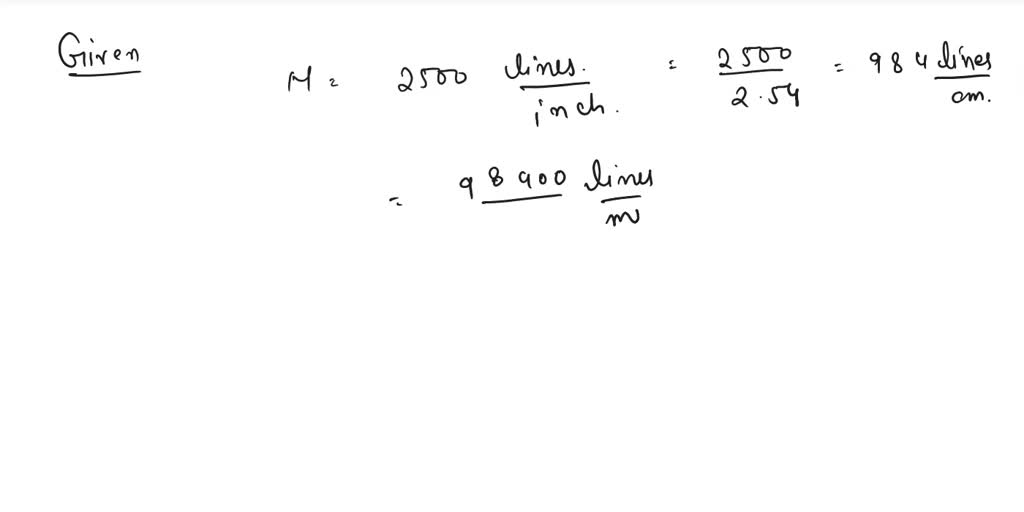 Given
M = 2500 lines. / inch. = 2500 / 2.54 = 984 lines / cm.
= 98400 lines / m